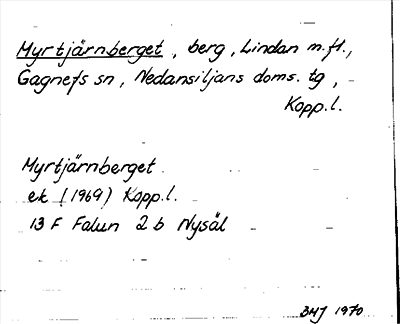 Myrtjärnberget, berg, Lindan m.fl.,
Gagnefs sn, Nedansiljans doms. tg,
Kopp.l.
Myrtjärnberget
ek (1969) Kopp.l.
13 F Falun 2 b Nysäl
1970